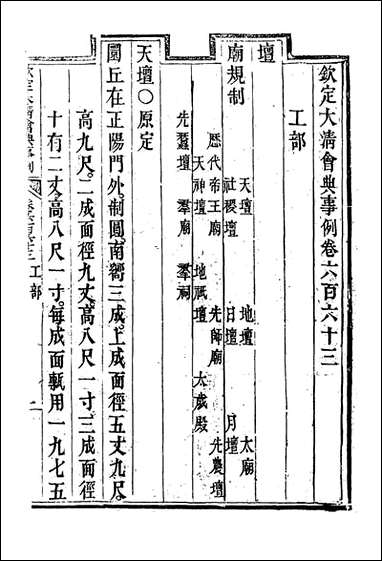 欽定大清會典事例卷六百六十三
工部
壇廟規制
天壇 地壇 太廟
社稷壇 日壇 月壇
歷代帝王廟 先師廟 先農壇
天神壇 地祇壇 太歲殿
先蠶壇 羣廟 羣祠
天壇〇原定
圜丘在正陽門外制圓南嚮三成上成面徑五丈九尺
高九尺二成面徑九丈高八尺一寸三成面徑
十有二丈高八尺一寸每成面甎用一九七五
工部